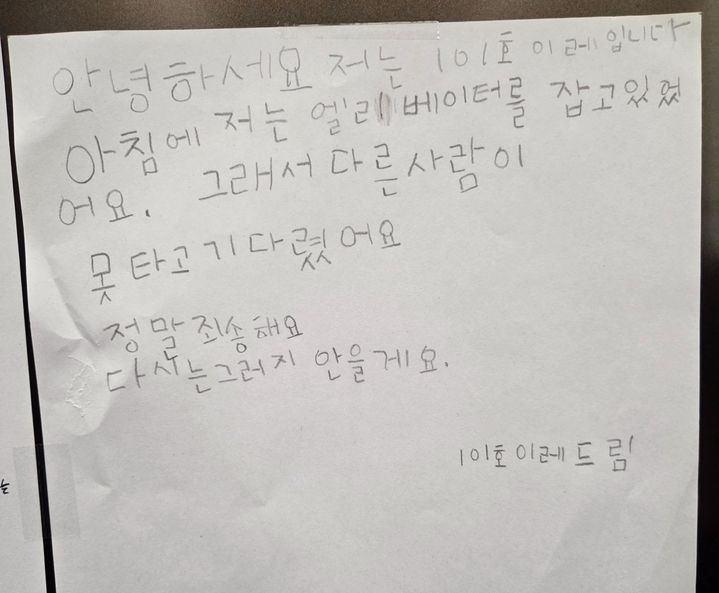 안녕하세요 저는 101호 이레입니다
아침에 저는 엘리베이터를 잡고있었
어요. 그래서 다른사람이
못타고기다렸어요
정말죄송해요
다시는그러지 안을게요.
101호이레드림